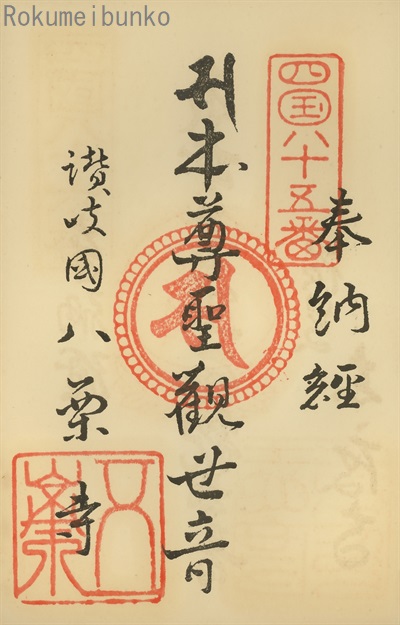 Rokumeibunko
四国八十五番
奉納經
本尊聖觀世音
讃岐國八栗寺